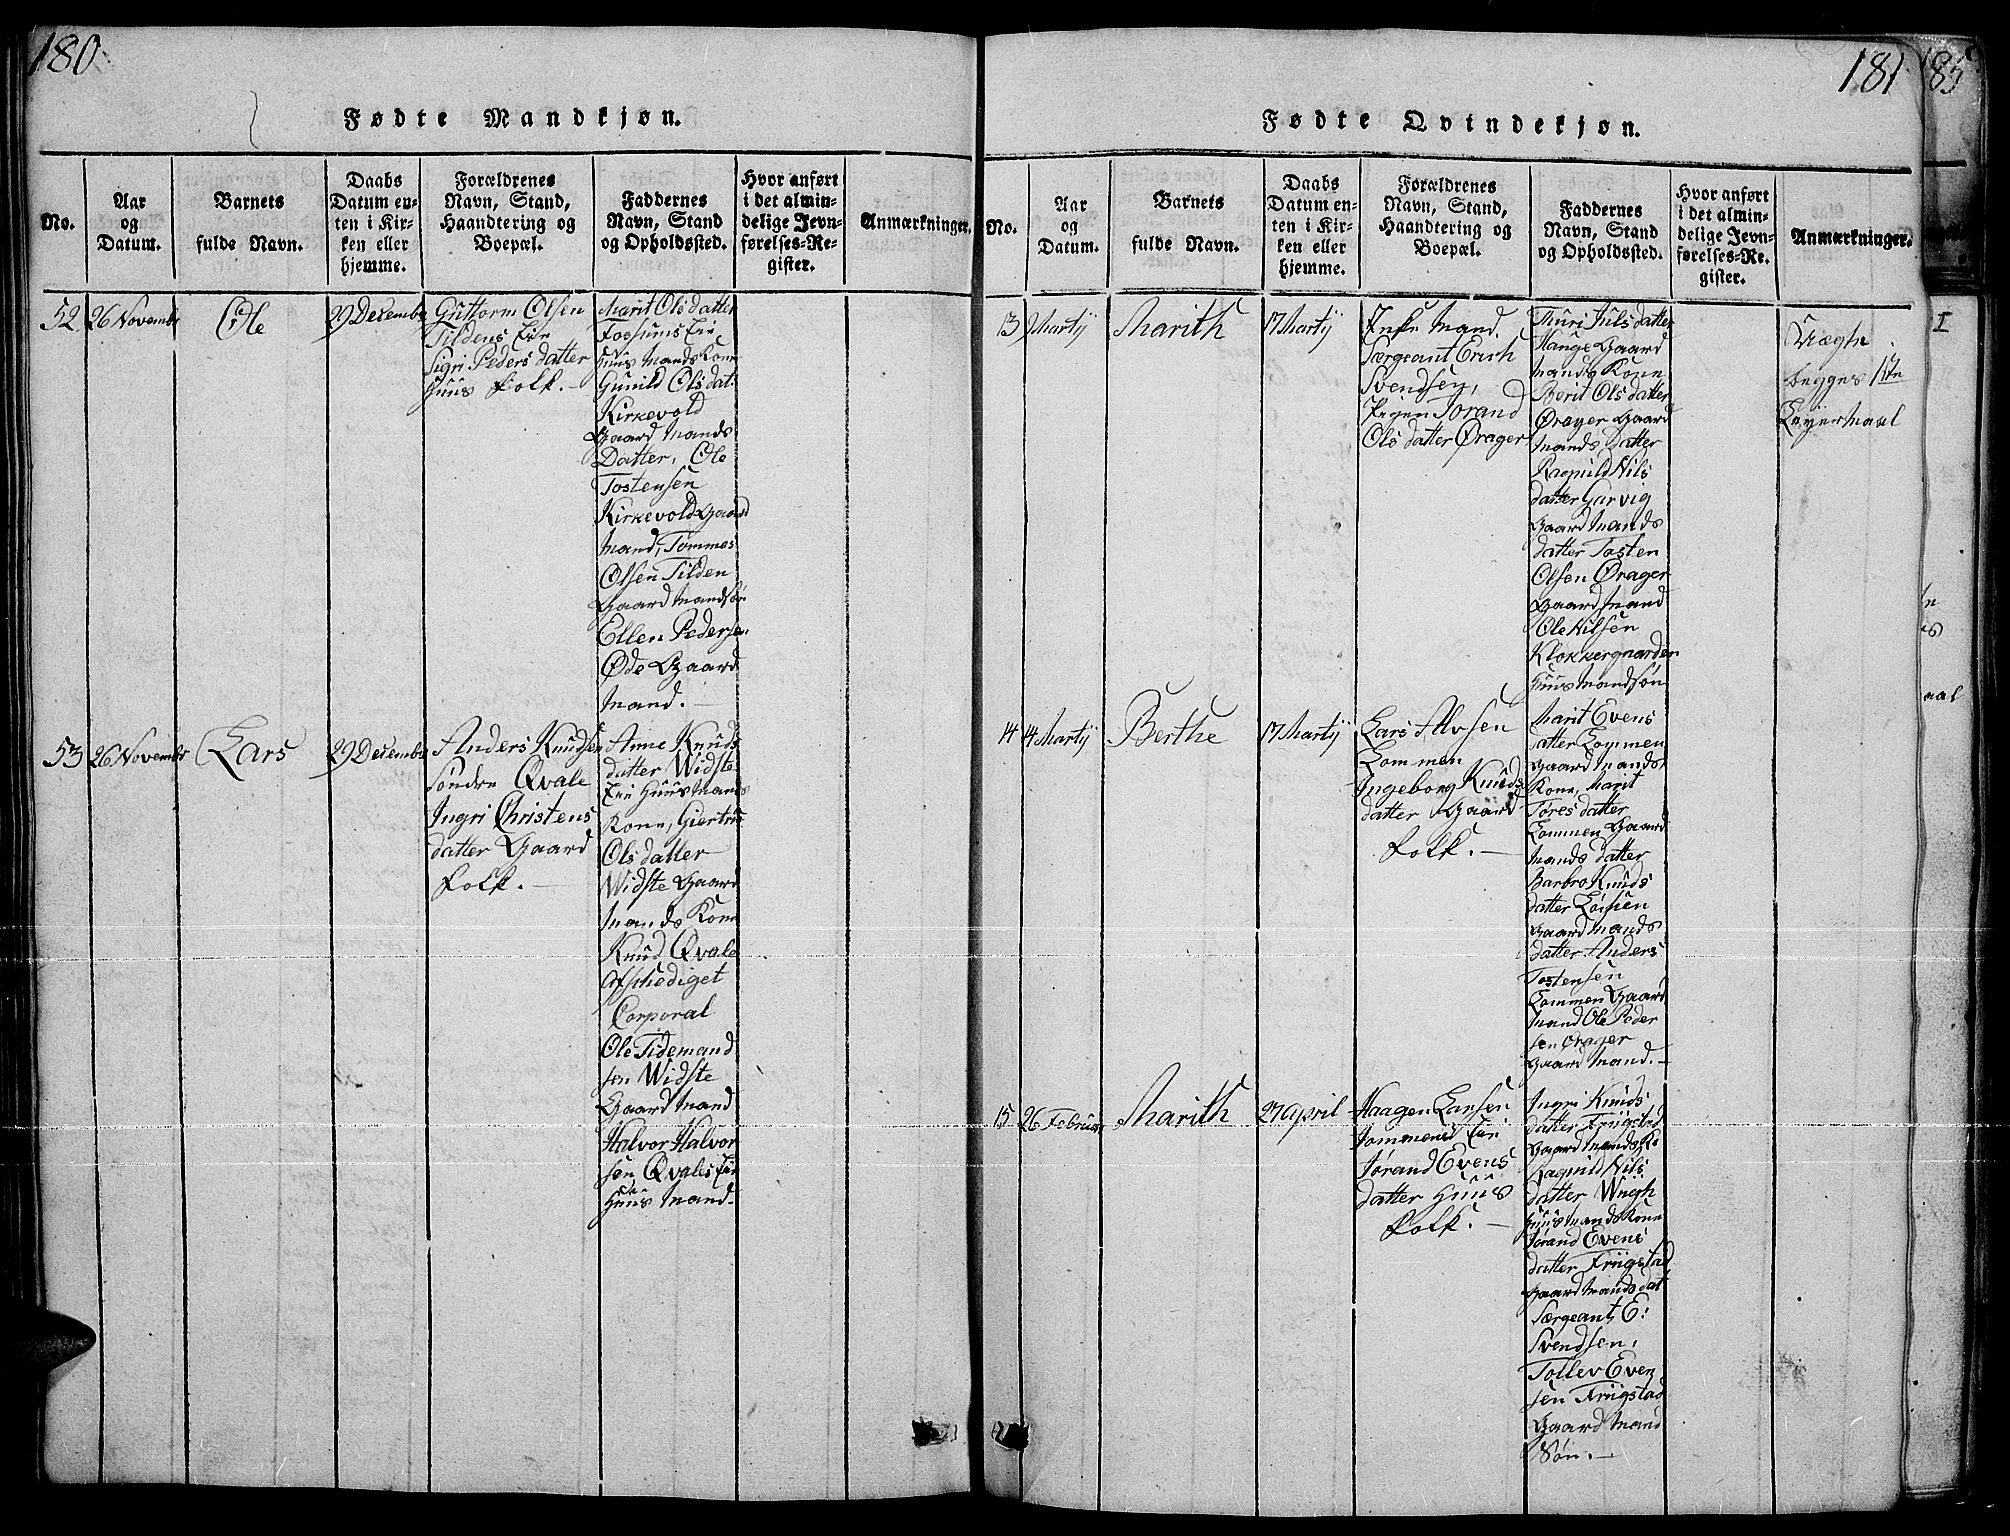 180
Fødte Mandkjøn.
No.
Aar
og
Datum.
Barnets
fulde Navn.
Daabs
Datum en-
ten i Kir-
ken eller
hjemme.
Forældrenes
Navn, Stand,
Haandtering og
Boepæl.
Faddernes
Navn, Stand
og Opholdssted.
Hvor anført
i det almin-
delige Jevn-
førelses-Re-
gister.
Anmærkninger.
52
26 Novembr
Ole
29 Decembr
Guttorm Olsen
Tildens Eie
Sigri Peders datter
Huus Folk. —
Marit Ols datter
Fossums Eie
Huus Mands Kone
Gunild Ols dat:
Kirkevold
Gaard Mands
Datter, Ole
Tostensen
Kirkevold Gaard
Mand, Tommes
Olsen Tilden
Gaard Mandsøn
Ellen Pedersen
Øde Gaard
Mand. —
53
26 Novembr
Lars
29 Decembr
Anders Knudsen
søndre Qvale
Ingri Christens
datter Gaard
Folk. —
Anne Knuds
datter Widste
Eie Huusmands
Kone, Giertru
Ols datter
Widste Gaard
Mands Kone
Knud Qvale
Afskediget
Corporal
Ole Tidemand
sen Widste
Gaard Mand
Halvor Halvor
sen Qvales Eie
Huus Mand.
181
Fødte Qvindekjøn.
No.
Aar
og
Datum.
Barnets
fulde Navn.
Daabs
Datum en-
ten i Kir-
ken eller
hjemme.
Forældrenes
Navn, Stand,
Haandtering og
Boepæl.
Faddernes
Navn, Stand
og Opholdssted.
Hvor anført
i det almin-
delige Jevn-
førelses-Re-
gister.
Anmærkninger.
13
Martij
Marith
17 Martij
Enke Mand
Særgeant Erich
Svendsen,
Pigen Jorand
Ols datter Ørager
Thuri Nils datter
Hauge Gaard
Mands Kone
Berit Ols datter
Ørager Gaard
Mands Datter
Ragnild Nils
datter Garvig
Gaard Mands
datter Tosten
Olsen Ørager
Gaard Mand
Ole Nilsen
Klokkergaarden
Huus Mandsøn
begges 1ste
Leyermaal
14
4 Martij
Berthe
17 Martij
Lars Alvsen
Lommen
Ingeborg Knuds
datter Gaard
Folk. —
Marit Evens
datter Lommen
Gaard Mands
Kone, Marit
Tøres datter
Lommen Gaard
Mands datter
Barbro Knuds
datter
Gaard Mands
datter Anders
Tostensen
Lommen Gaard
Mand Ole Peder
sen Ørager
Gaard Mand. —
15
26 Februar
Marith
27 April
Haagen Larsen
Lommens Eie
Jørand Evens
datter Huus
Folk. —
Ingri Knuds
datter Friigstad
Gaard Mands Ko
Ragnild Nils
datter Wægh
Huus Mands Kone
Jorand Evens
datter Friigstad
Gaard Mands dat
Særgeant E:
Svendsen,
Tollev Even
sen Friigstad
Gaard Mand
Søn. —
185
I
aal